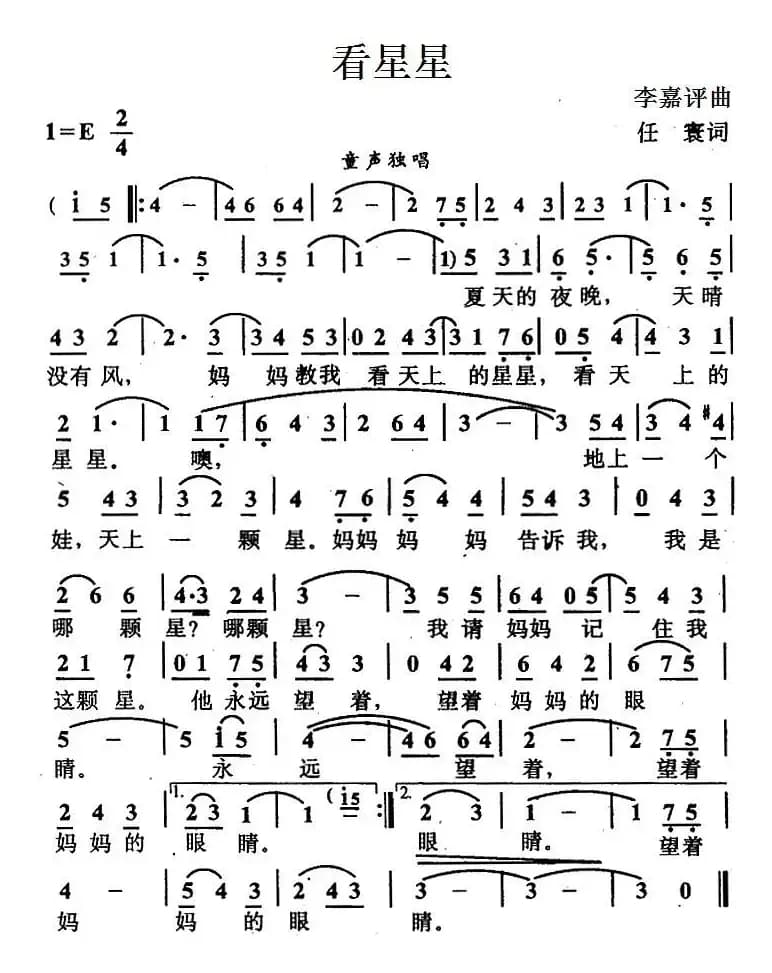 看星星
李嘉评曲
1=E 2/4
任 寰词
童声独唱
( i 5 ‖: 4 - | 4 6 6 4 | 2 - | 2 7 5 | 2 4 3 | 2 3 1 | 1 · 5 |
3 5 1 | 1 · 5 | 3 5 1 | 1 - | 1) 5 3 1 | 6 5 · | 5 6 5 |
夏天的 夜晚， 天晴
4 3 2 | 2 · 3 | 3 4 5 3 | 0 2 4 3 | 3 1 7 6 | 0 5 4 | 4 3 1 |
没有风， 妈 妈教我 看天上 的星星，看 天 上的
2 1 · | 1 1 7 | 6 4 3 | 2 6 4 | 3 - | 3 5 4 | 3 4 #4 |
星星。 噢， 地上一个
5 4 3 | 3 2 3 | 4 7 6 | 5 4 4 | 5 4 3 | 0 4 3 |
娃，天上 一 颗 星。妈妈 妈 妈 告诉我， 我是
2 6 6 | 4·3 2 4 | 3 - | 3 5 5 | 6 4 0 5 | 5 4 3 |
哪 颗 星？哪颗 星？ 我请 妈妈 记 住我
2 1 7 | 0 1 7 5 | 4 3 3 | 0 4 2 | 6 4 2 | 6 7 5 |
这颗 星。 他 永远 望 着， 望着 妈妈的 眼
5 - | 5 i 5 | 4 - | 4 6 6 4 | 2 - | 2 7 5 |
睛。 永 远 望 着， 望着
2 4 3 | 1. 2 3 1 | 1 ( i5 :‖ 2. 2 3 | 1 - | 1 7 5 |
妈妈的 眼 睛。 眼 睛。 望着
4 - | 5 4 3 | 2 4 3 | 3 - | 3 - | 3 0 ‖
妈 妈 的 眼 睛。